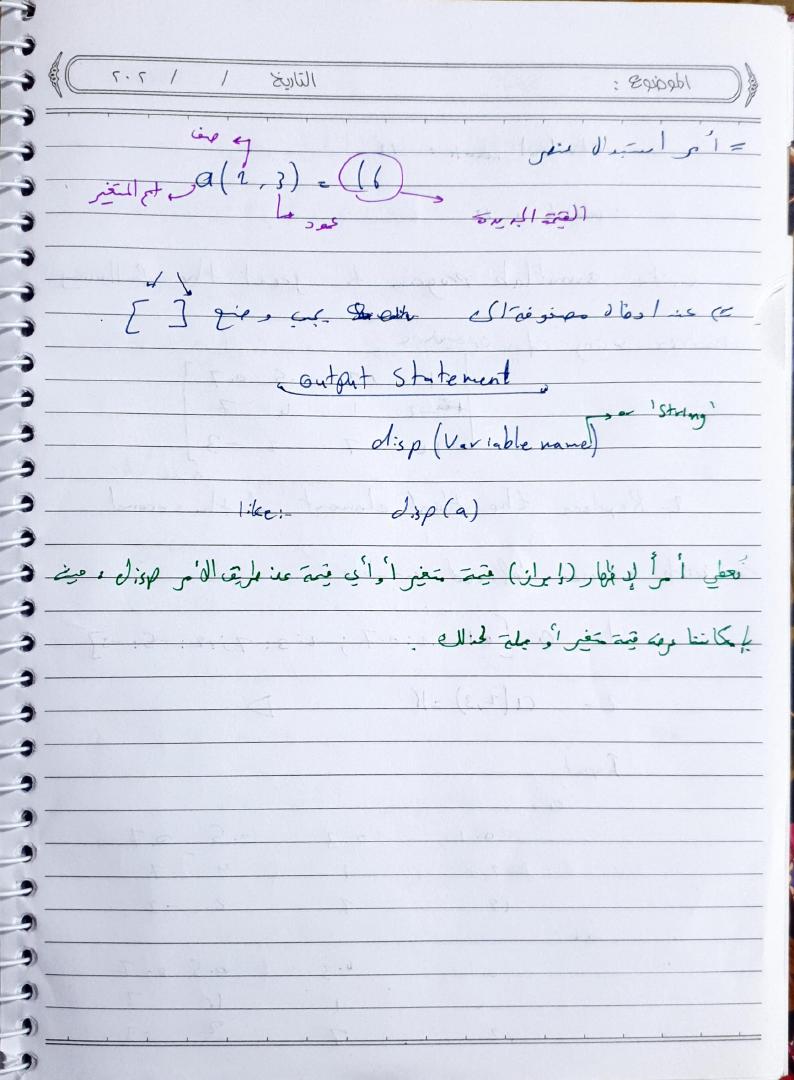 الموضوع : التاريخ / / ٢٠٢
= أمر استبدال عنصر
صف
a(2,3) = 16
اسم المتغير
عمود
القيمة الجديدة
عند ادخال مصفوفة الى يجب وضع [ ] .
output Statement
or 'String'
disp (Variable name)
like:- disp(a)
نعطي أمراً لإظهار (إبراز) قيمة متغير أو أي قيمة عن طريق الأمر disp، حيث
بإمكاننا عرض قيمة متغير أو جملة كذلك .